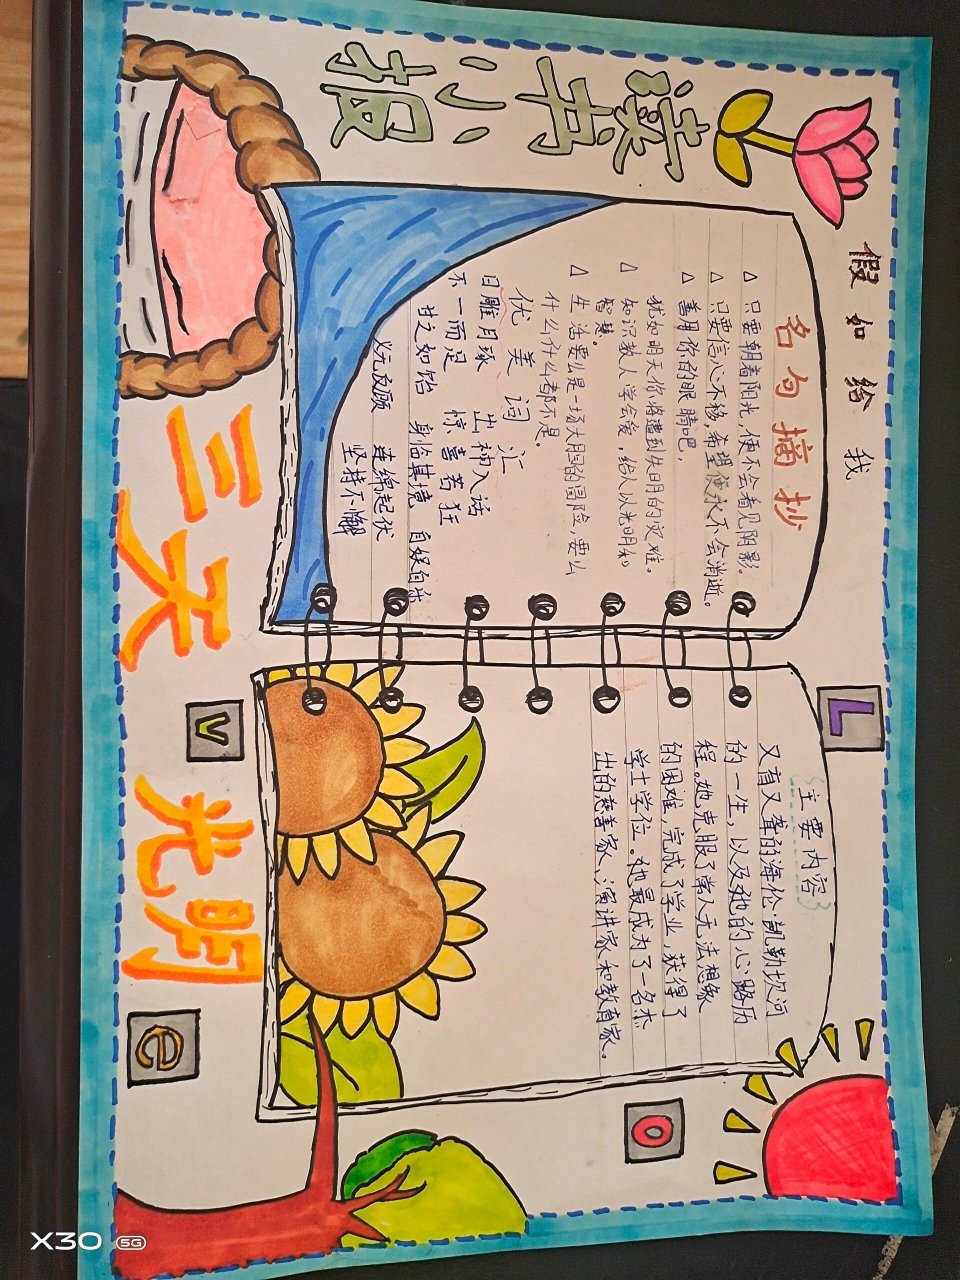 读书小报
假如给我
三天光明
L
o
v
e
名句摘抄
△ 只要朝着阳光,便不会看见阴影。
△ 只要信心不移,希望便永不会消逝。
△ 善用你的眼睛吧,
犹如明天你将遭到失明的灾难。
△ 知识教人学会爱,给人以光明和
智慧。
△ 生活要么是一场大胆的冒险,要么
什么什么都不是。
优美词汇
日雕月琢 出神入话
不一而足 惊喜若狂
甘之如饴 身临其境 自娱自乐
义无反顾 连绵起伏
坚持不懈
{主要内容}
又盲又聋的海伦·凯勒坎坷
的一生,以及她的心路历
程。她克服了常人无法想象
的困难,完成了学业,获得了
学士学位。她最成为了一名杰
出的慈善家、演讲家和教育家。
X30 5G